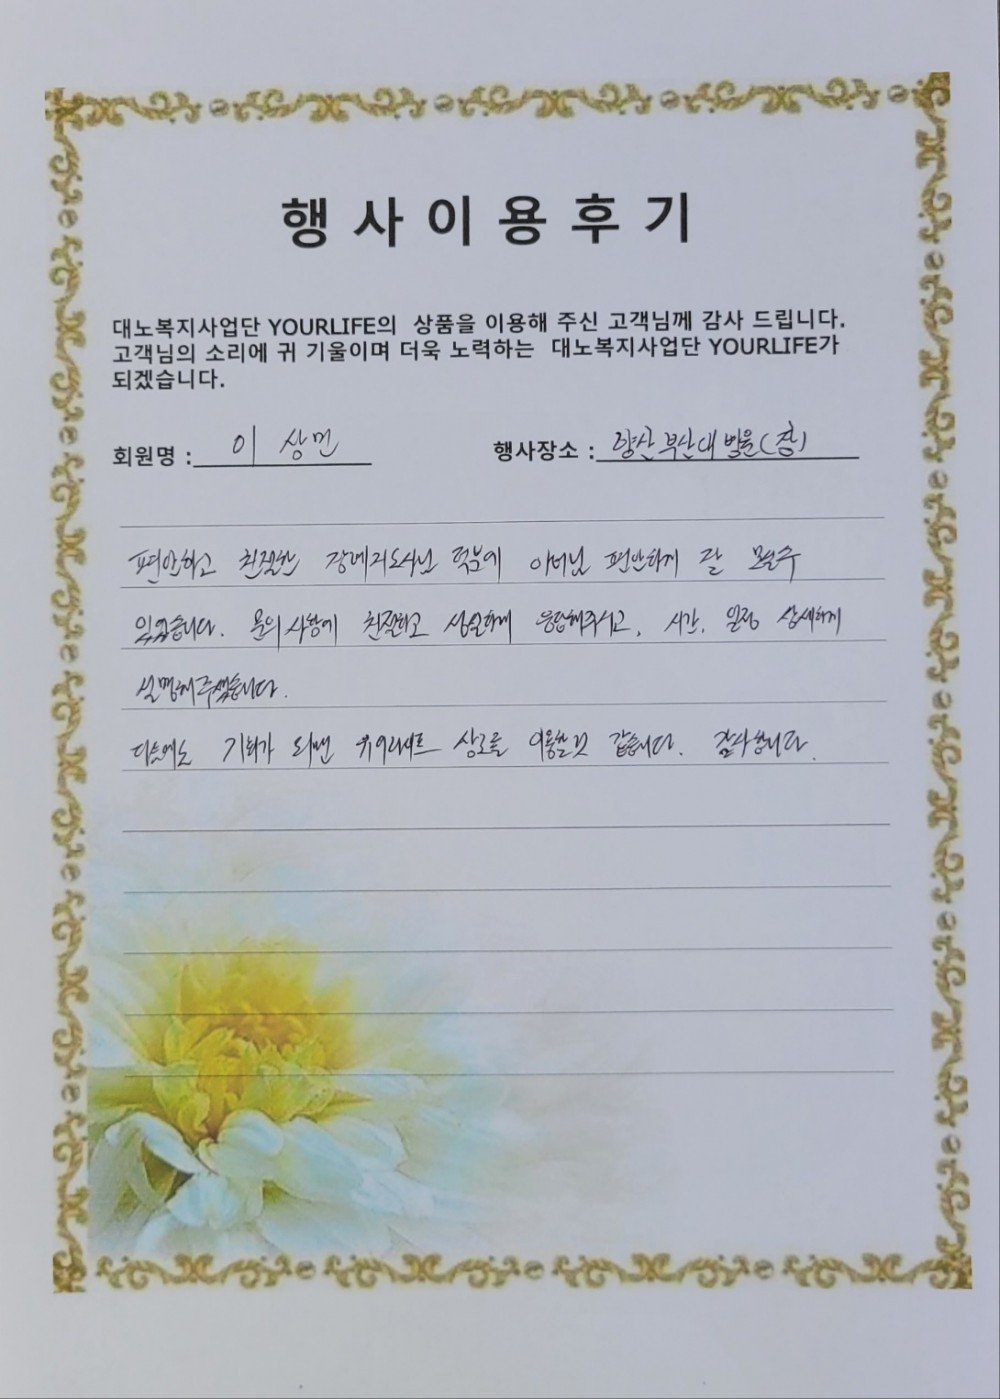 행사이용후기
대노복지사업단 YOURLIFE의 상품을 이용해 주신 고객님께 감사 드립니다.
고객님의 소리에 귀 기울이며 더욱 노력하는 대노복지사업단 YOURLIFE가
되겠습니다.
회원명 : 이상먼 행사장소 : 부산대 병원
편안하고 친절한 장례지도사님 덕분에 어머님 편안하게 잘 모실수
있었습니다. 문의 사항에 친절하고 성실하게 응답해주시고, 시간, 일정 상세하게
설명해주셨습니다.
다음에도 기회가 되면 유어라이프 상조를 이용할것 같습니다. 감사합니다.